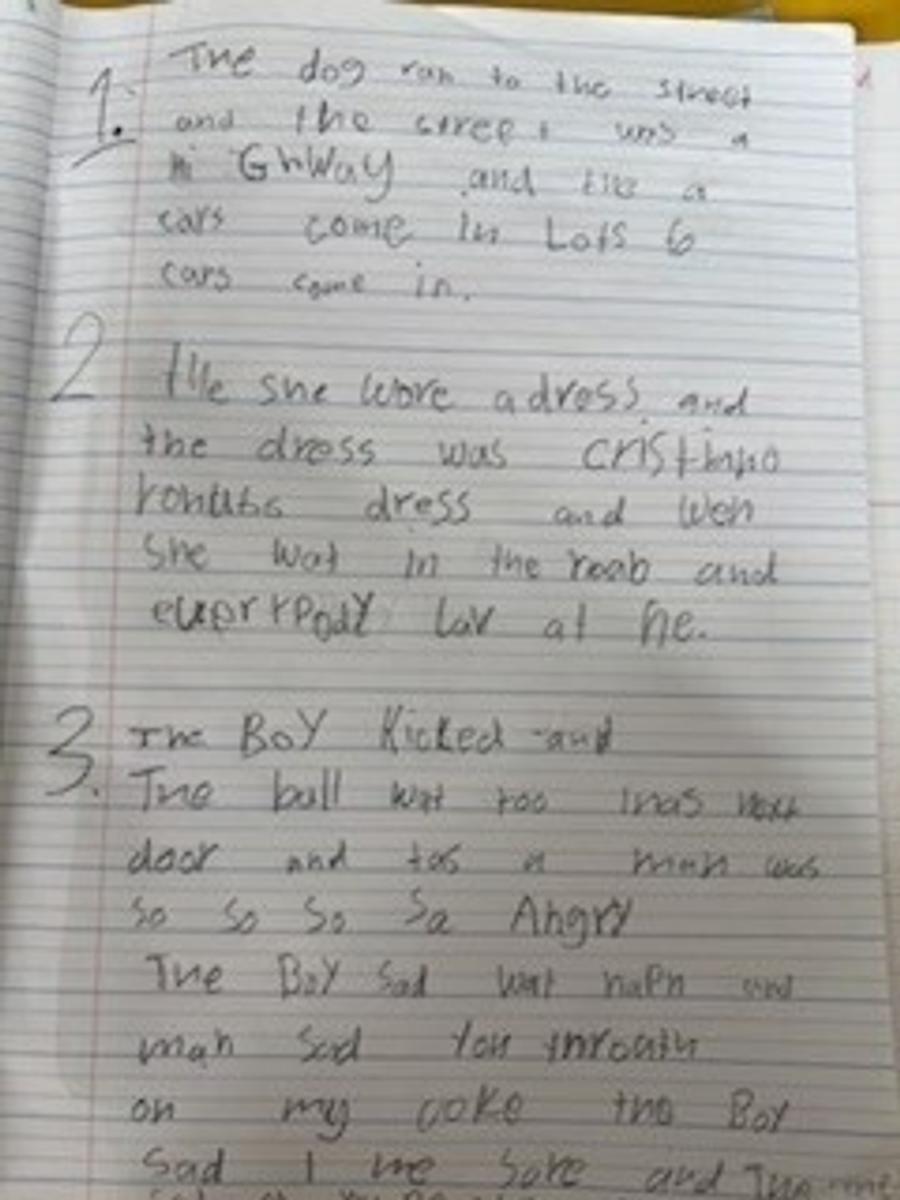 1. The dog ran to the street
and the street was a
hi GhWaY and the a
cars come in Lots 6
cars come in.
2 the she wore a dress and
the dress was
dress and wen
she wat in the roob and
lav at he.
3. The BoY Kicked and
The ball wat too next
door and tas a man was
so so so Sa AngrY
The BoY Sad wat hapn and
man Sad You
on my coke the BoY
Sad I me Sore and